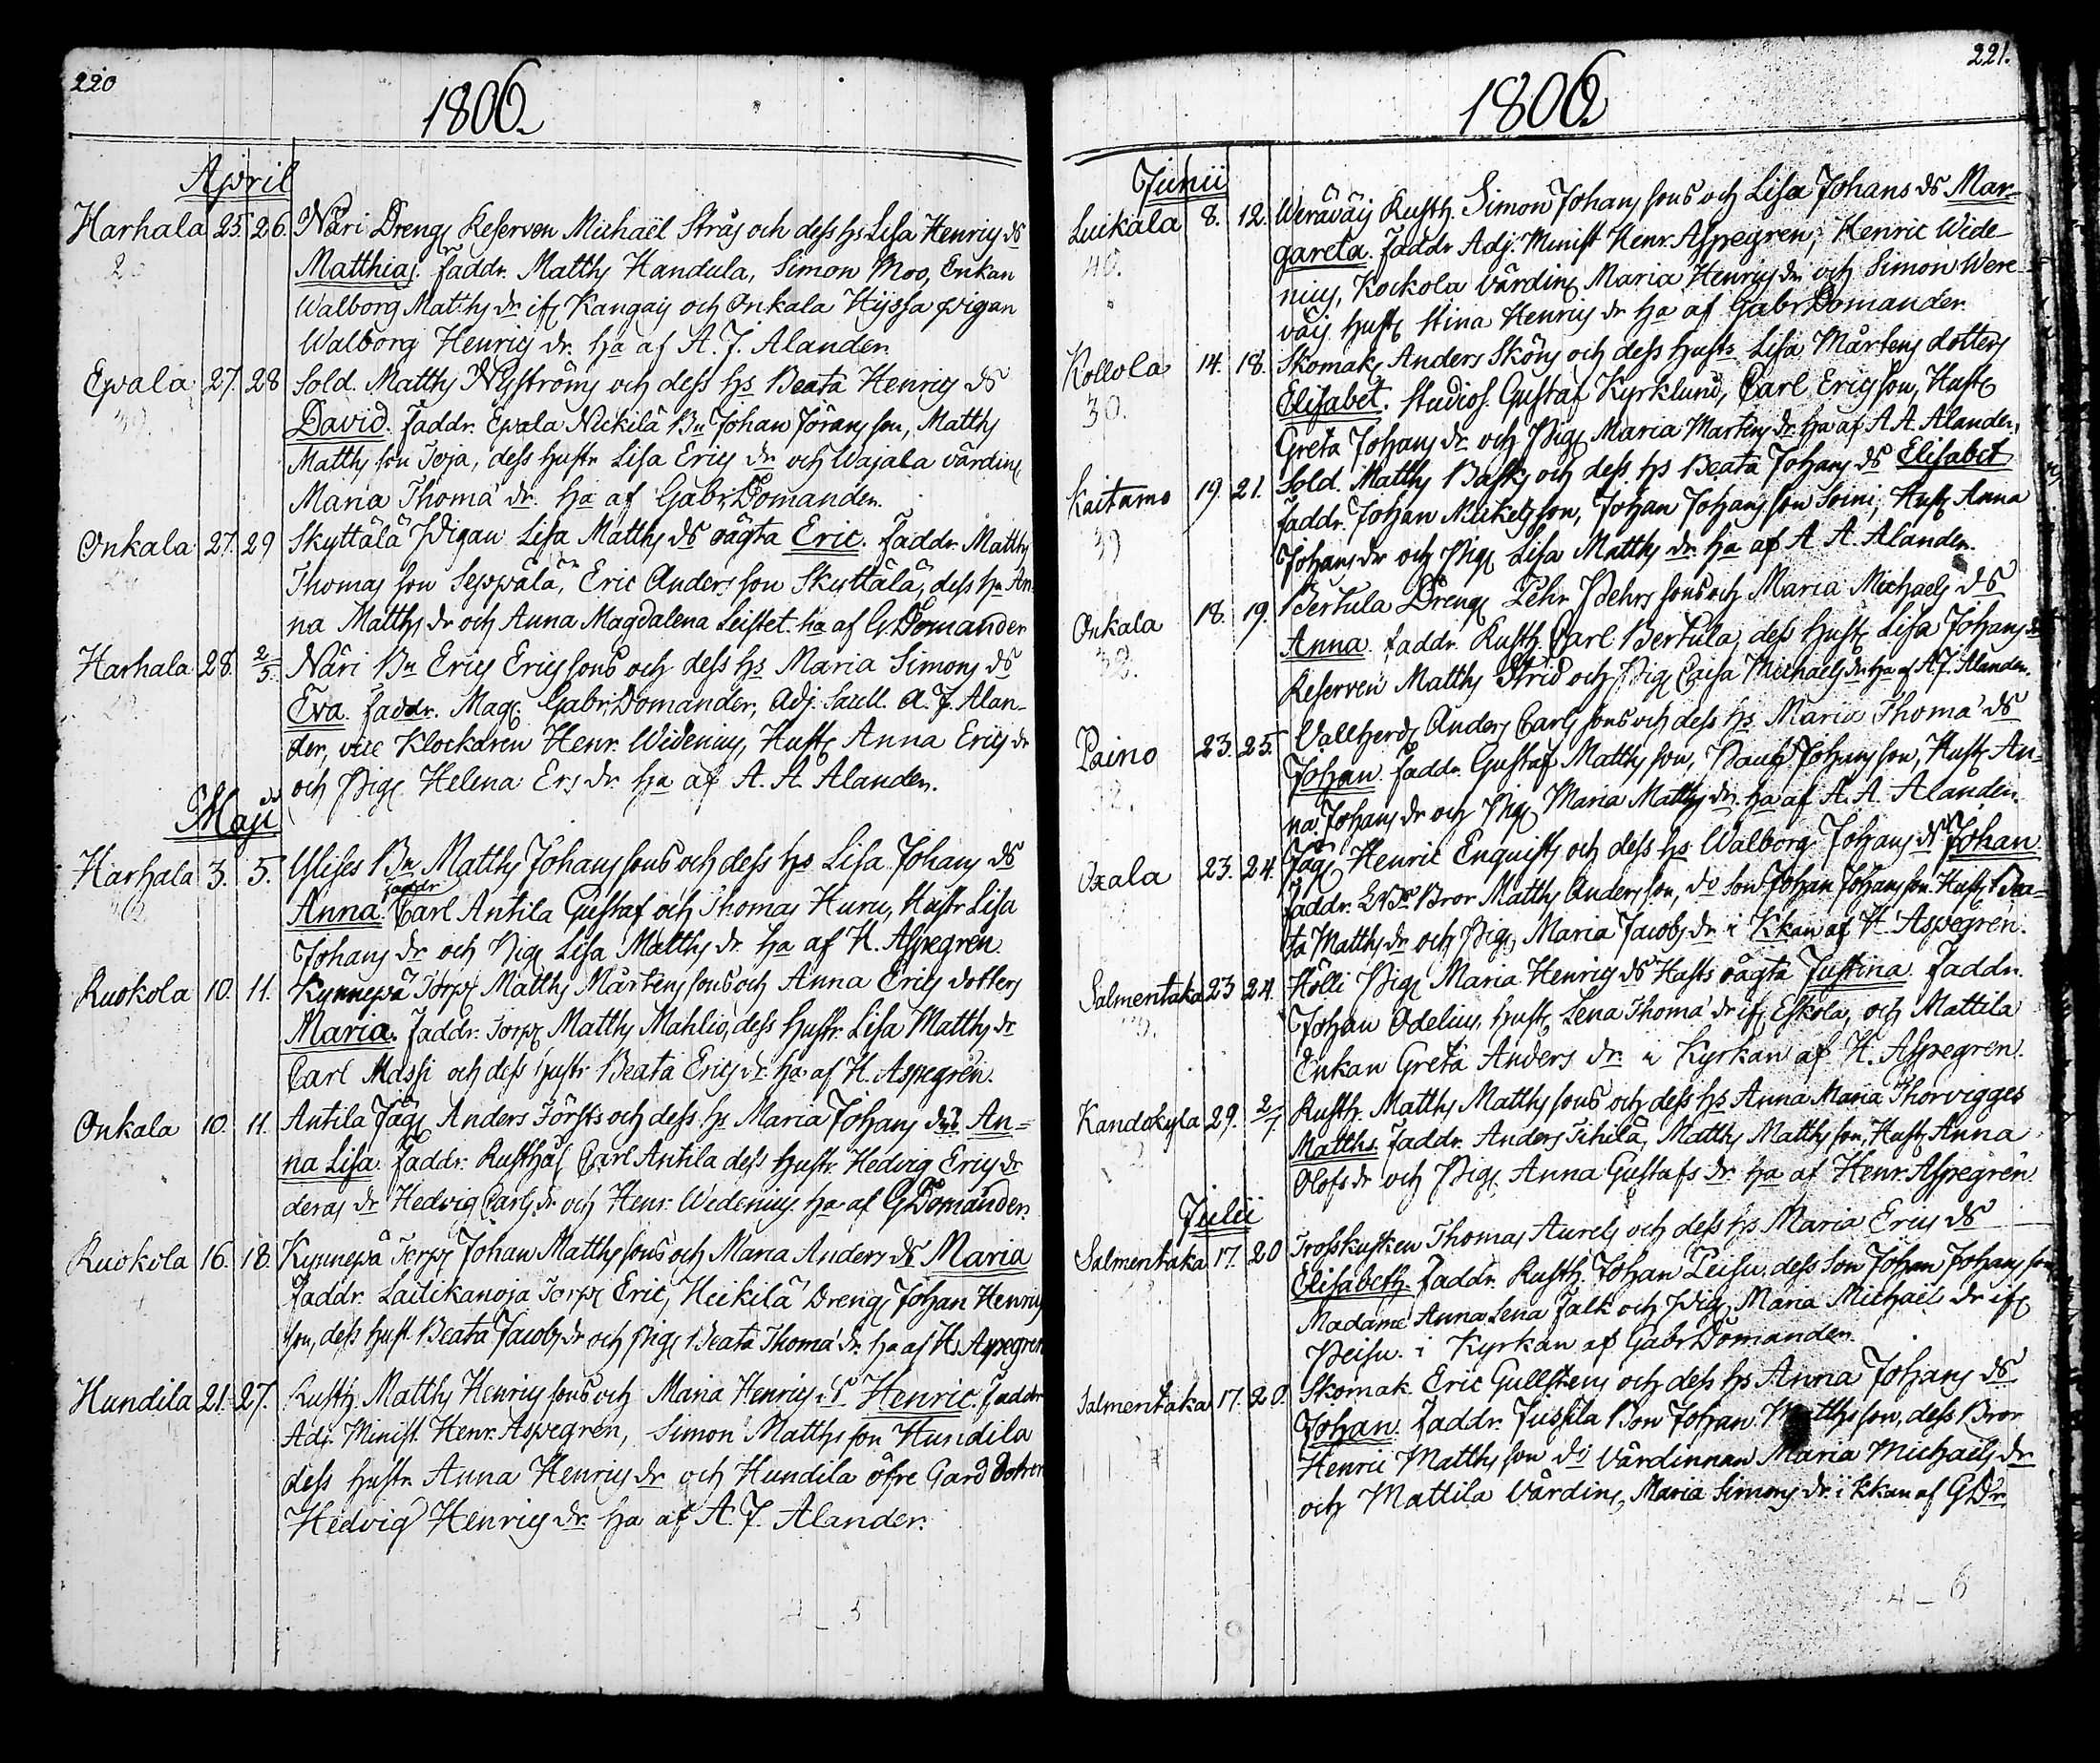 220
1806.
April
Harhala 25. 26. Näri Dreng Reserven Michaël Strås och dess hs Lisa Henrics ds
Matthias. faddr. Matths Handula, Simon Moo, Enkan
Walborg Matths dr ifr Kangais och Onkala Hyssa pigan
Walborg Henrics dr. ha af A. J. Alander.
Epala 27. 28 Sold. Matths Nyströms och dess hs Beata Henrics ds
David. faddr. Epala Nickilä Bn Johan Jörans son, Matths
Matths son Toja, dess hustr Lisa Erics dr och Wajala värdin
Maria Thomæ dr. ha af Gabr. Domander.
Onkala 27. 29 Skyttälä Pigan Lisa Matths ds oägta Eric. Faddr. Matths
Thomas son Seppälä, Eric Anders son Skyttälä, dess ha An-
na Matths dr och Anna Magdalena Leistet. ha af G. Domander
Harhala 28. 2/5. Näri Bn Erics Erics sons och dess hs Maria Simons ds
Eva. faddr. Mag. Gabr. Domander, Adj. Sacell. A. J. Alan-
der, vice Klockaren Henr. Widenius, Hustr Anna Erics dr
och Pig. Helena Ers dr. ha af A. A. Alander.
Maji
Harhala 3. 5. Ylises Bn Matths Johans sons och dess hs Lisa Johans ds
faddr
Anna. Carl Antila Gustaf och Thomas Huru, Hustr Lisa
Johans dr och Pig. Lisa Matths dr. ha af H. Aspegren.
Ruokola 10. 11. Kynnepä Torp. Matths Mårtens sons och Anna Erics dotters
Maria. Faddr. Torp. Matths Mahlio, dess Hustr. Lisa Matths dr
Carl Massi och dess hustr Beata Erics dr ha af H. Aspegrén.
Onkala 10. 11. Antila Jäg. Anders Törsts och dess hs Maria Johans ds An-
na Lisa. Faddr. Rusthål. Carl Antila dess Hustr. Hedvig Erics dr
deras dr Hedvig Carls dr och Henr. Widenius. ha af G. Domander.
Ruokola 16. 18. Kynnepä Torp. Johan Matths sons och Maria Anders ds Maria
Faddr. Lailikanoja Torp. Eric, Heikilä Dreng. Johan Henrics
son, dess hust. Beata Jacobs dr och Pig. Beata Thomæ dr. ha af H. Aspegren
Hundila 21. 27. Rusth. Matths Henrics sons och Maria Henrics ds Henric. Faddr
Adj. Minist. Henr. Aspegren, Simon Matths son Hundila
dess hustr. Anna Henrics dr och Hundila öfre Gård dotren
Hedvig Henrics dr. ha af A. J. Alander.
221.
1806.
Junii
Luikala 8. 12. Weräväis Rusth. Simon Johans sons och Lisa Johans ds Mar-
40.
gareta. Faddr Adj. Minist Henr. Aspegren, Henric Wide-
nius, Kockola Värdin Maria Henrics dr och Simon Were-
väis hust Stina Henrics dr ha af Gabr Domander.
Rollola 14. 18. Skomak. Anders Sköns och dess hustr Lisa Mårtens dotters
30.
Elisabet. Studios. Gustaf Kyrklund, Carl Erics son, Hustr
Greta Johans dr och Pig. Maria Mårtens dr. ha af A A. Alander.
Kaitamo 19. 21. Sold. Matths Basks och dess hs Beata Johans ds Elisabet
39
Faddr. Johan Mickels son, Johan Johans son Soini, Hustr Anna
Johans dr och Pig. Lisa Matths dr. ha af A. A. Alander.
Onkala 18. 19. Bertula Dreng. Pehr Pehrs sons och Maria Michaels ds
Anna. faddr. Rusth. Carl Bertula, dess Hustr Lisa Johans dr
Reserven Matths Strid och Pig. Caisa Michaels dr. ha af A. J. Alander.
Paino 23. 25. Vallherd. Anders Carls sons och dess hs Maria Thomæ ds
32.
Johan. faddr. Gustaf Matths son, Johans son, Hustr An-
na Johans dr och Pig. Maria Matths dr. ha af A. A. Alander.
Oxala 23. 24. Jäg. Henric Enquists och dess hs Walborg Johans ds Johan
faddr. Bror Matths Anders son, do son Johan Johans son Hust Bea-
ta Matths dr och Pig. Maria Jacobs dr i Kkan af H. Aspegren.
Salmentaka 23 24. Hölli Pig. Maria Henrics ds Hasts oägta Justina. Faddr.
Johan Odelius, hust. Lena Thomæ dr ifr Eskola, och Mattila
Enkan Greta Anders dr. i Kyrkan af H. Aspegren.
Kandokyla 29. 2/7 Rusth. Matths Matths sons och dess hs Anna Maria Thorvigges
Matths. Faddr. Anders Tihilä, Matths Matths son, Hustr Anna
Olofs dr och Pig. Anna Gustafs dr. ha af Henr. Aspegrén
Julii
Salmentaka 17. 20 Trosskusken Thomas Aurels och dess hs Maria Erics ds
Elisabeth. Faddr. Rusth. Johan Peisu, dess son Johan Johans son,
Madame Anna Lena Falk och Pig. Maria Michaels dr ifr
Peisu. i Kyrkan af Gabr Domander.
Salmentaka 17. 20. Skomak. Eric Gullstens och dess hs Anna Johans ds
Johan. Faddr. Jussila Bon Johan Matths son, dess Bror
Henric Matths son do Värdinnan Maria Michaels dr
och Mattila Värdin. Maria Simons dr. i Kkan af G Dr
4 – 6